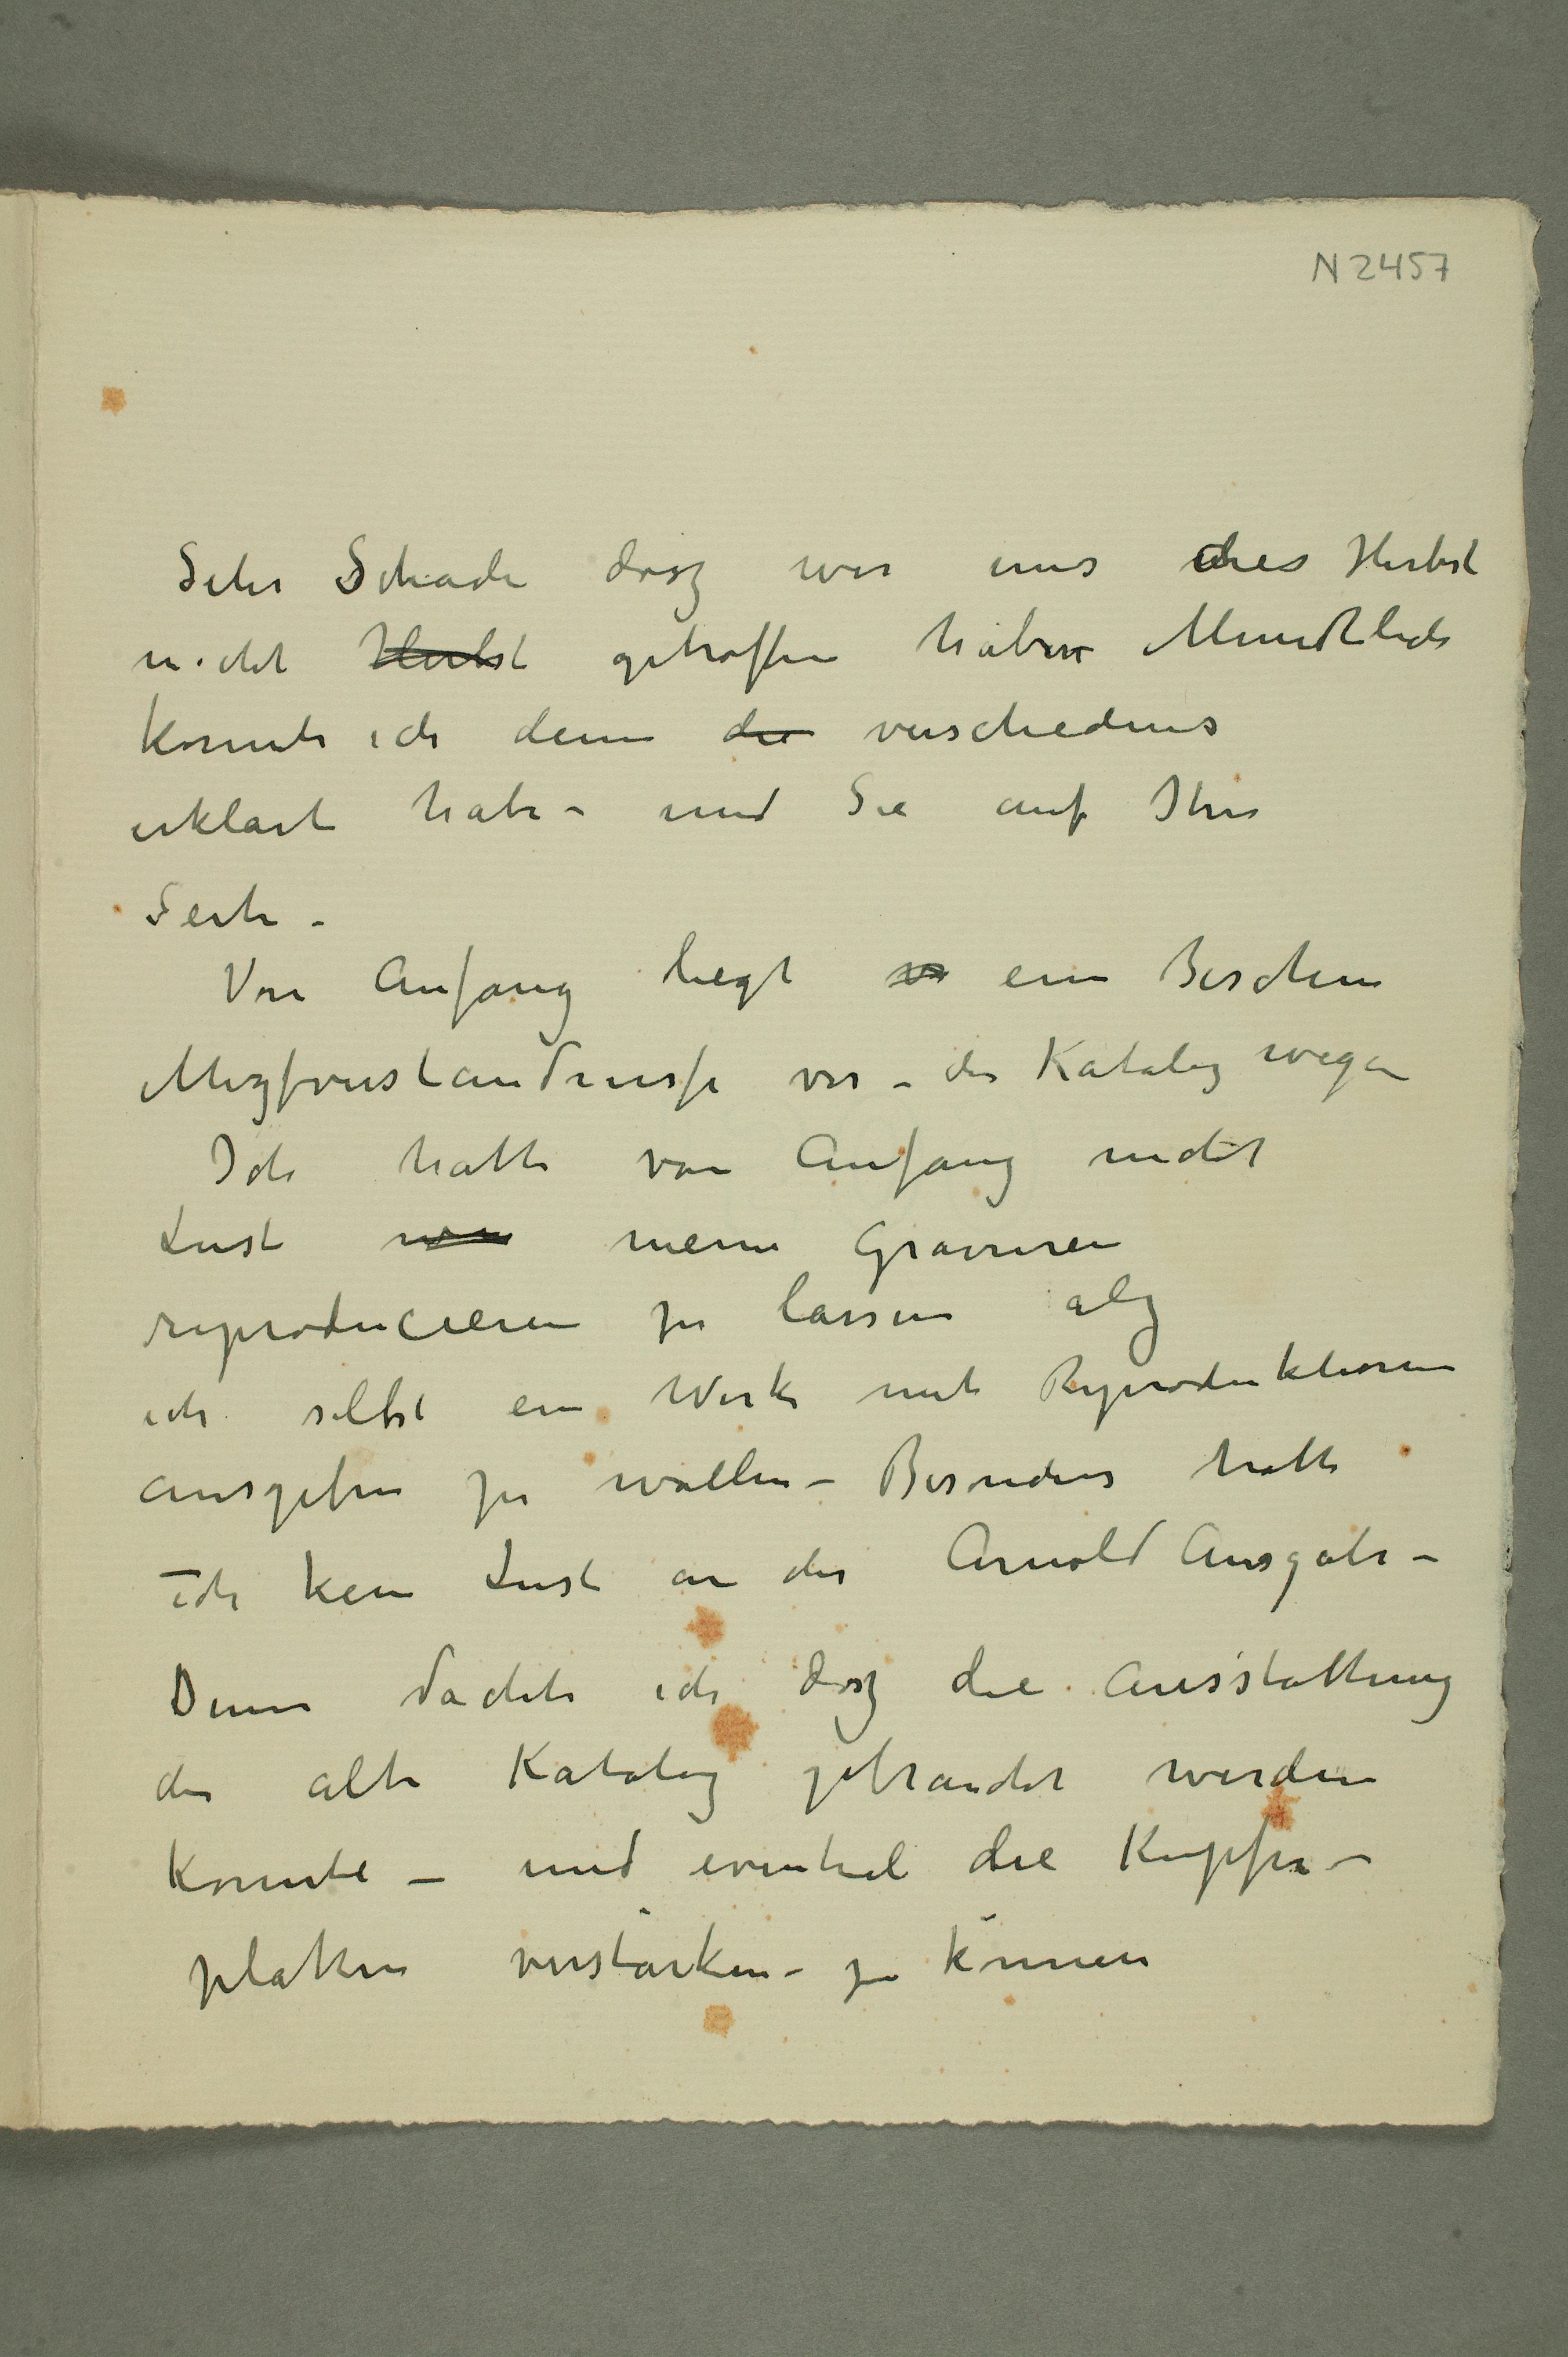 N 2457
Sehr Schade dasz wir uns dies Herbst
nicht Herbst getroffen haben Mundtlich
konnte ich denn die verschiedenes
erklart habe – und Sie auf Ihre
Seite –
Von Anfang liegt ein Bischen
Mizfverstandnisse vor – der Katalog wegen
Ich hatte von Anfang nicht
Lust meine Gravuren
reproducieren zu lassen alz
ich selbst ein Werk mit Reproduktionen
ausgeben zu wollen – Besonders hatte
ich kein Lust an der Arnold Ausgabe –
Denn dachte ich dasz die Ausstattung
der alte Katalog gebraucht werden
konnte – und eventuel die Kupfer –
platten verstärken – zu können